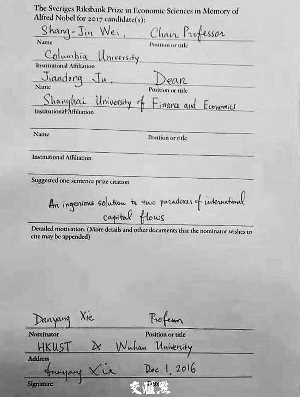 The Sveriges Riksbank Prize in Economic Sciences in Memory of
Alfred Nobel for 2017 candidate(s):
Shang-Jin Wei, Chair Professor
Name Position or title
Columbia University
Institutional Affiliation
Jiandong Ju, Dean
Name Position or title
Shanghai University of Finance and Economics
Institutional Affiliation
Name Position or title
Institutional Affiliation
Suggested one-sentence prize citation
An ingenious solution to two paradoxes of international
capital flows
Detailed motivation. (More details and other documents that the nominator wishes to
cite may be appended)
Danyang Xie Professor
Nominator Position or title
HKUST & Wuhan University
Address
Danyang Xie Dec. 1, 2016
Signature Date